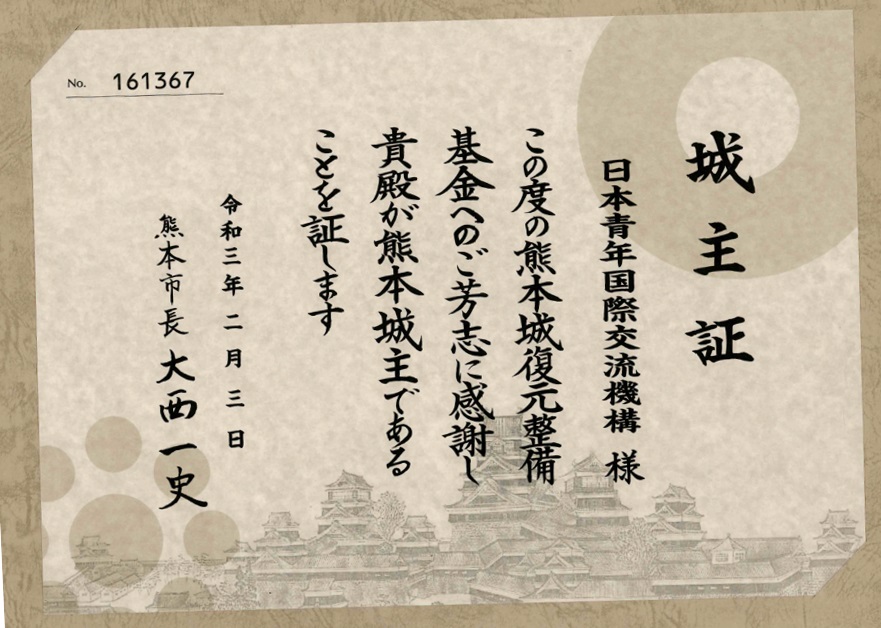 No. 161367
城主証
日本青年国際交流機構 様
この度の熊本城復元整備
基金へのご芳志に感謝し
貴殿が熊本城主である
ことを証します
令和三年二月三日
熊本市長 大西一史